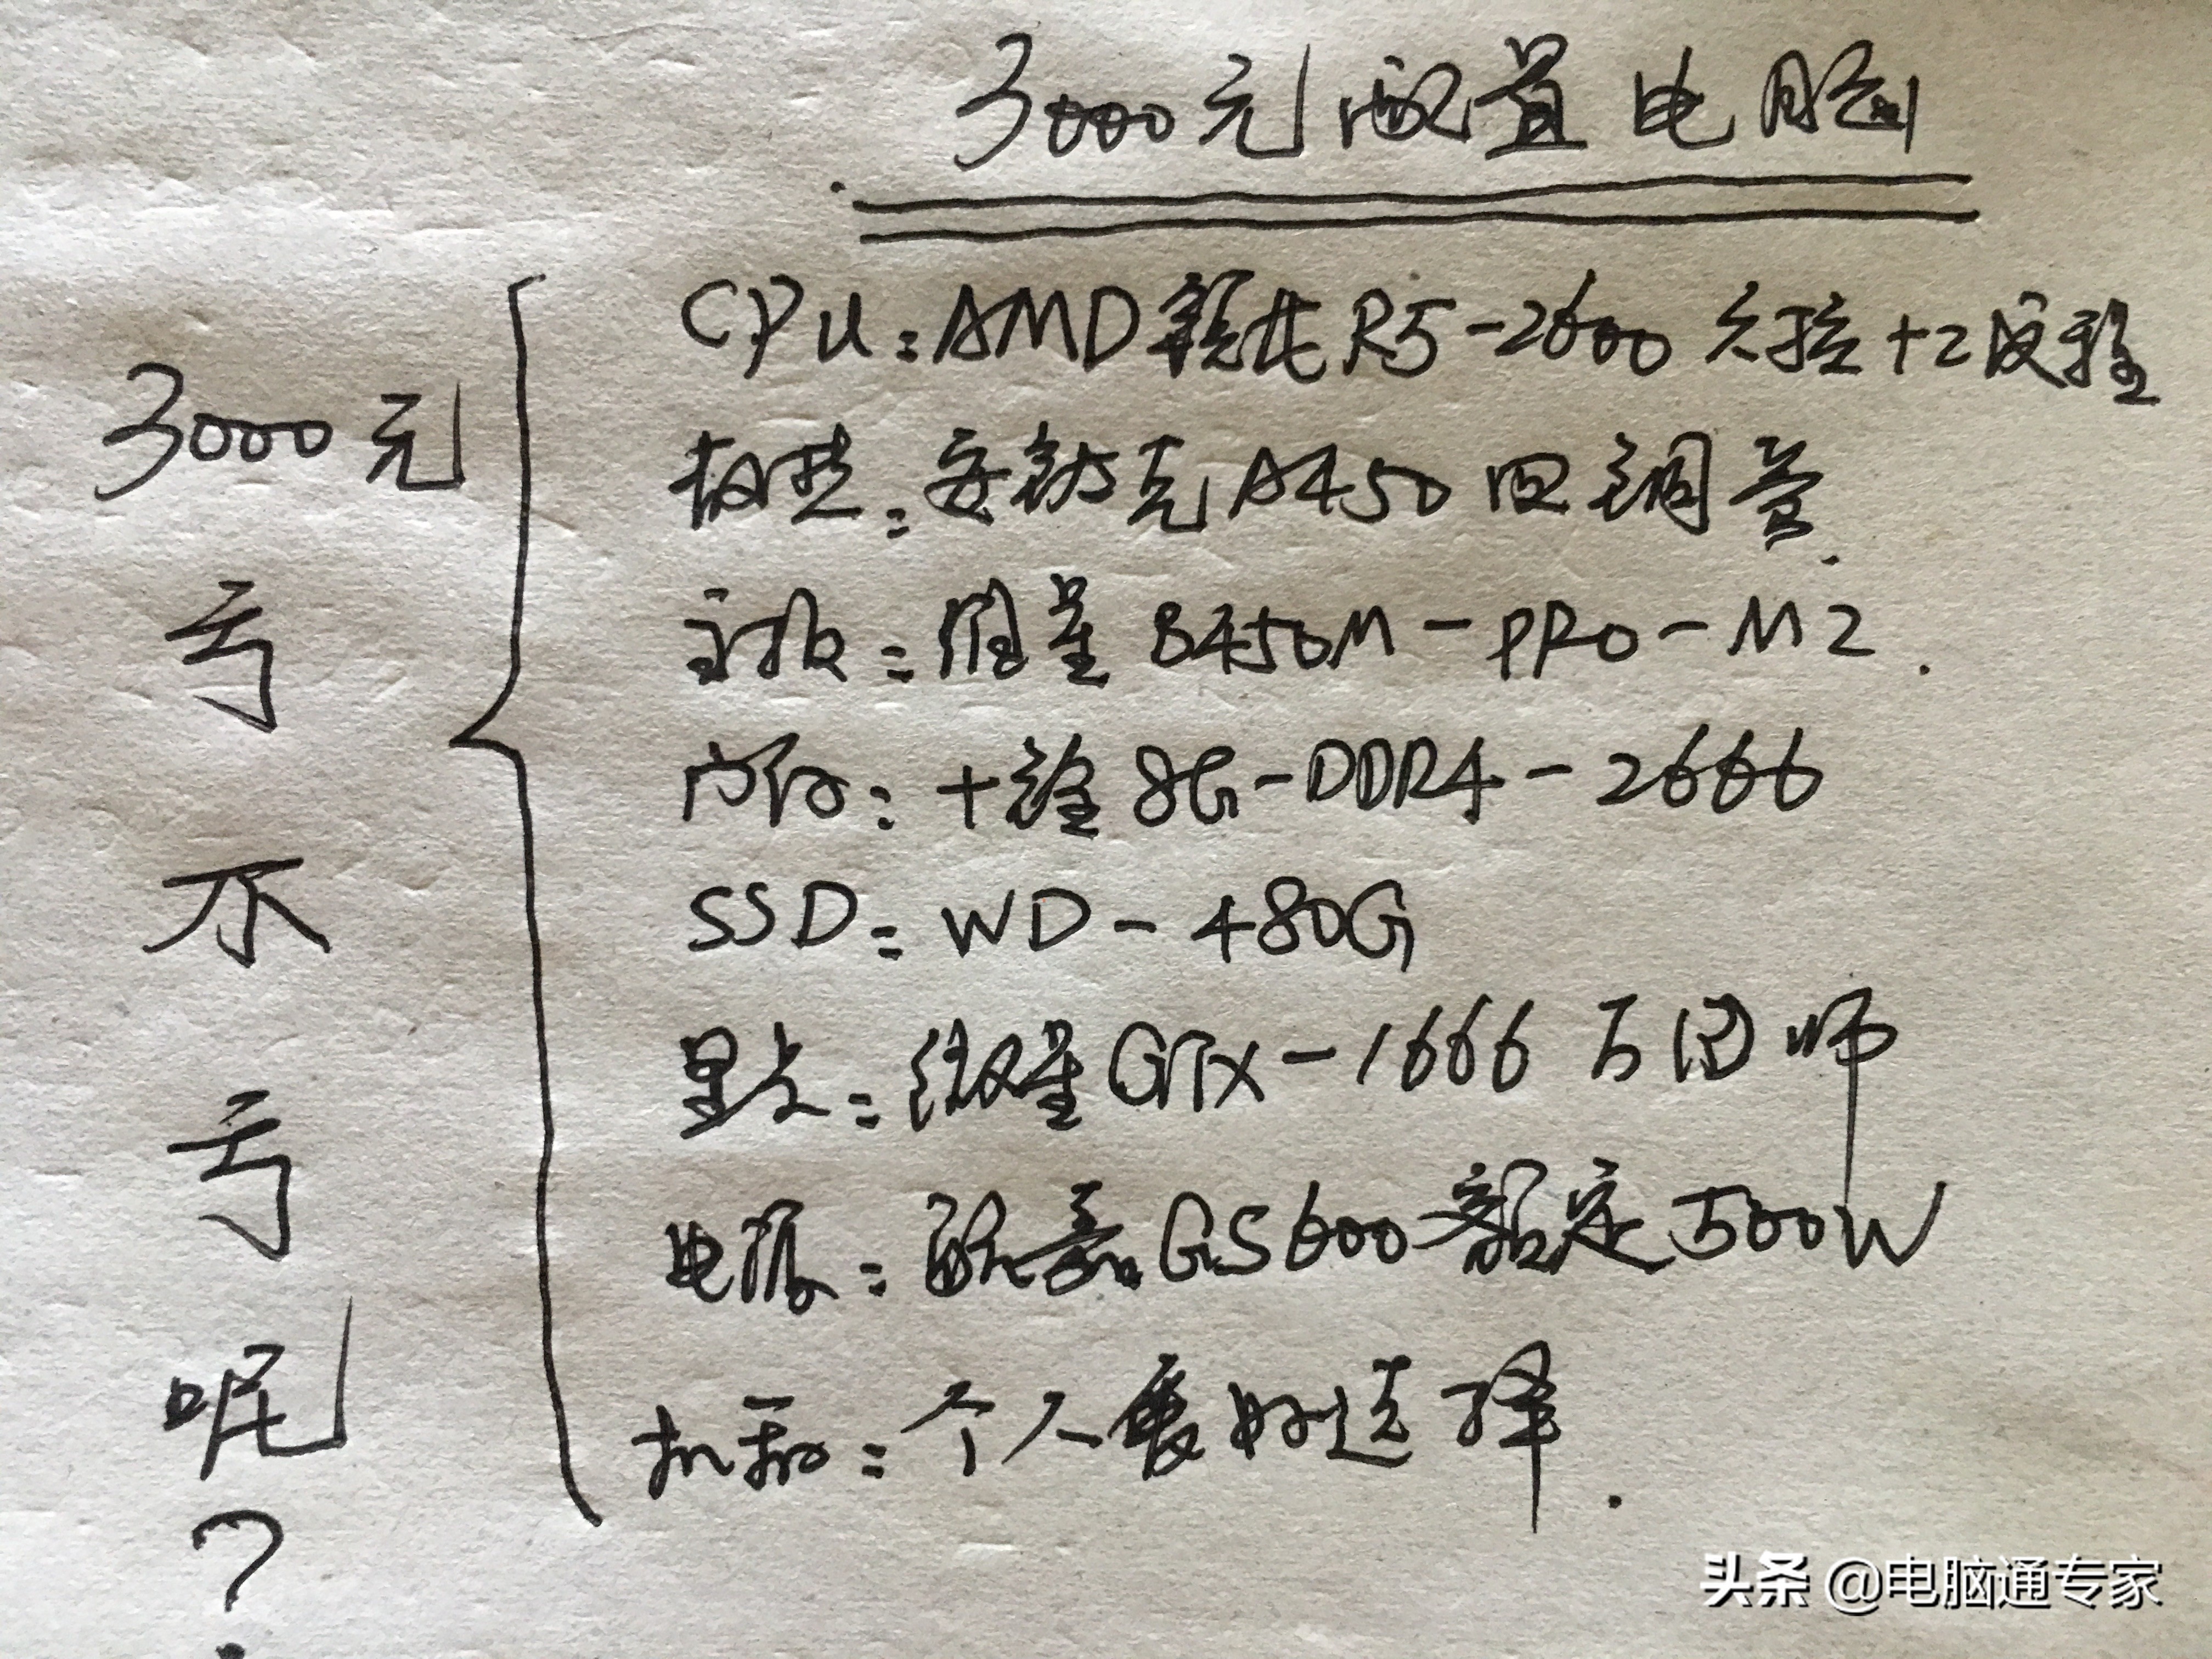 3000元配置电脑
CPU:AMD锐龙R5-2600六核十2线程
散热:安钛克A450四铜管.
主板:微星B450M-PRO-M2.
内存:十铨8G-DDR4-2666
SSD:WD-480G
显卡:微星GTX-1666万图师
电源:航嘉GS600额定500W
机箱:个人爱好选择.
3000元
亏
不
亏
呢
?
头条 @电脑通专家